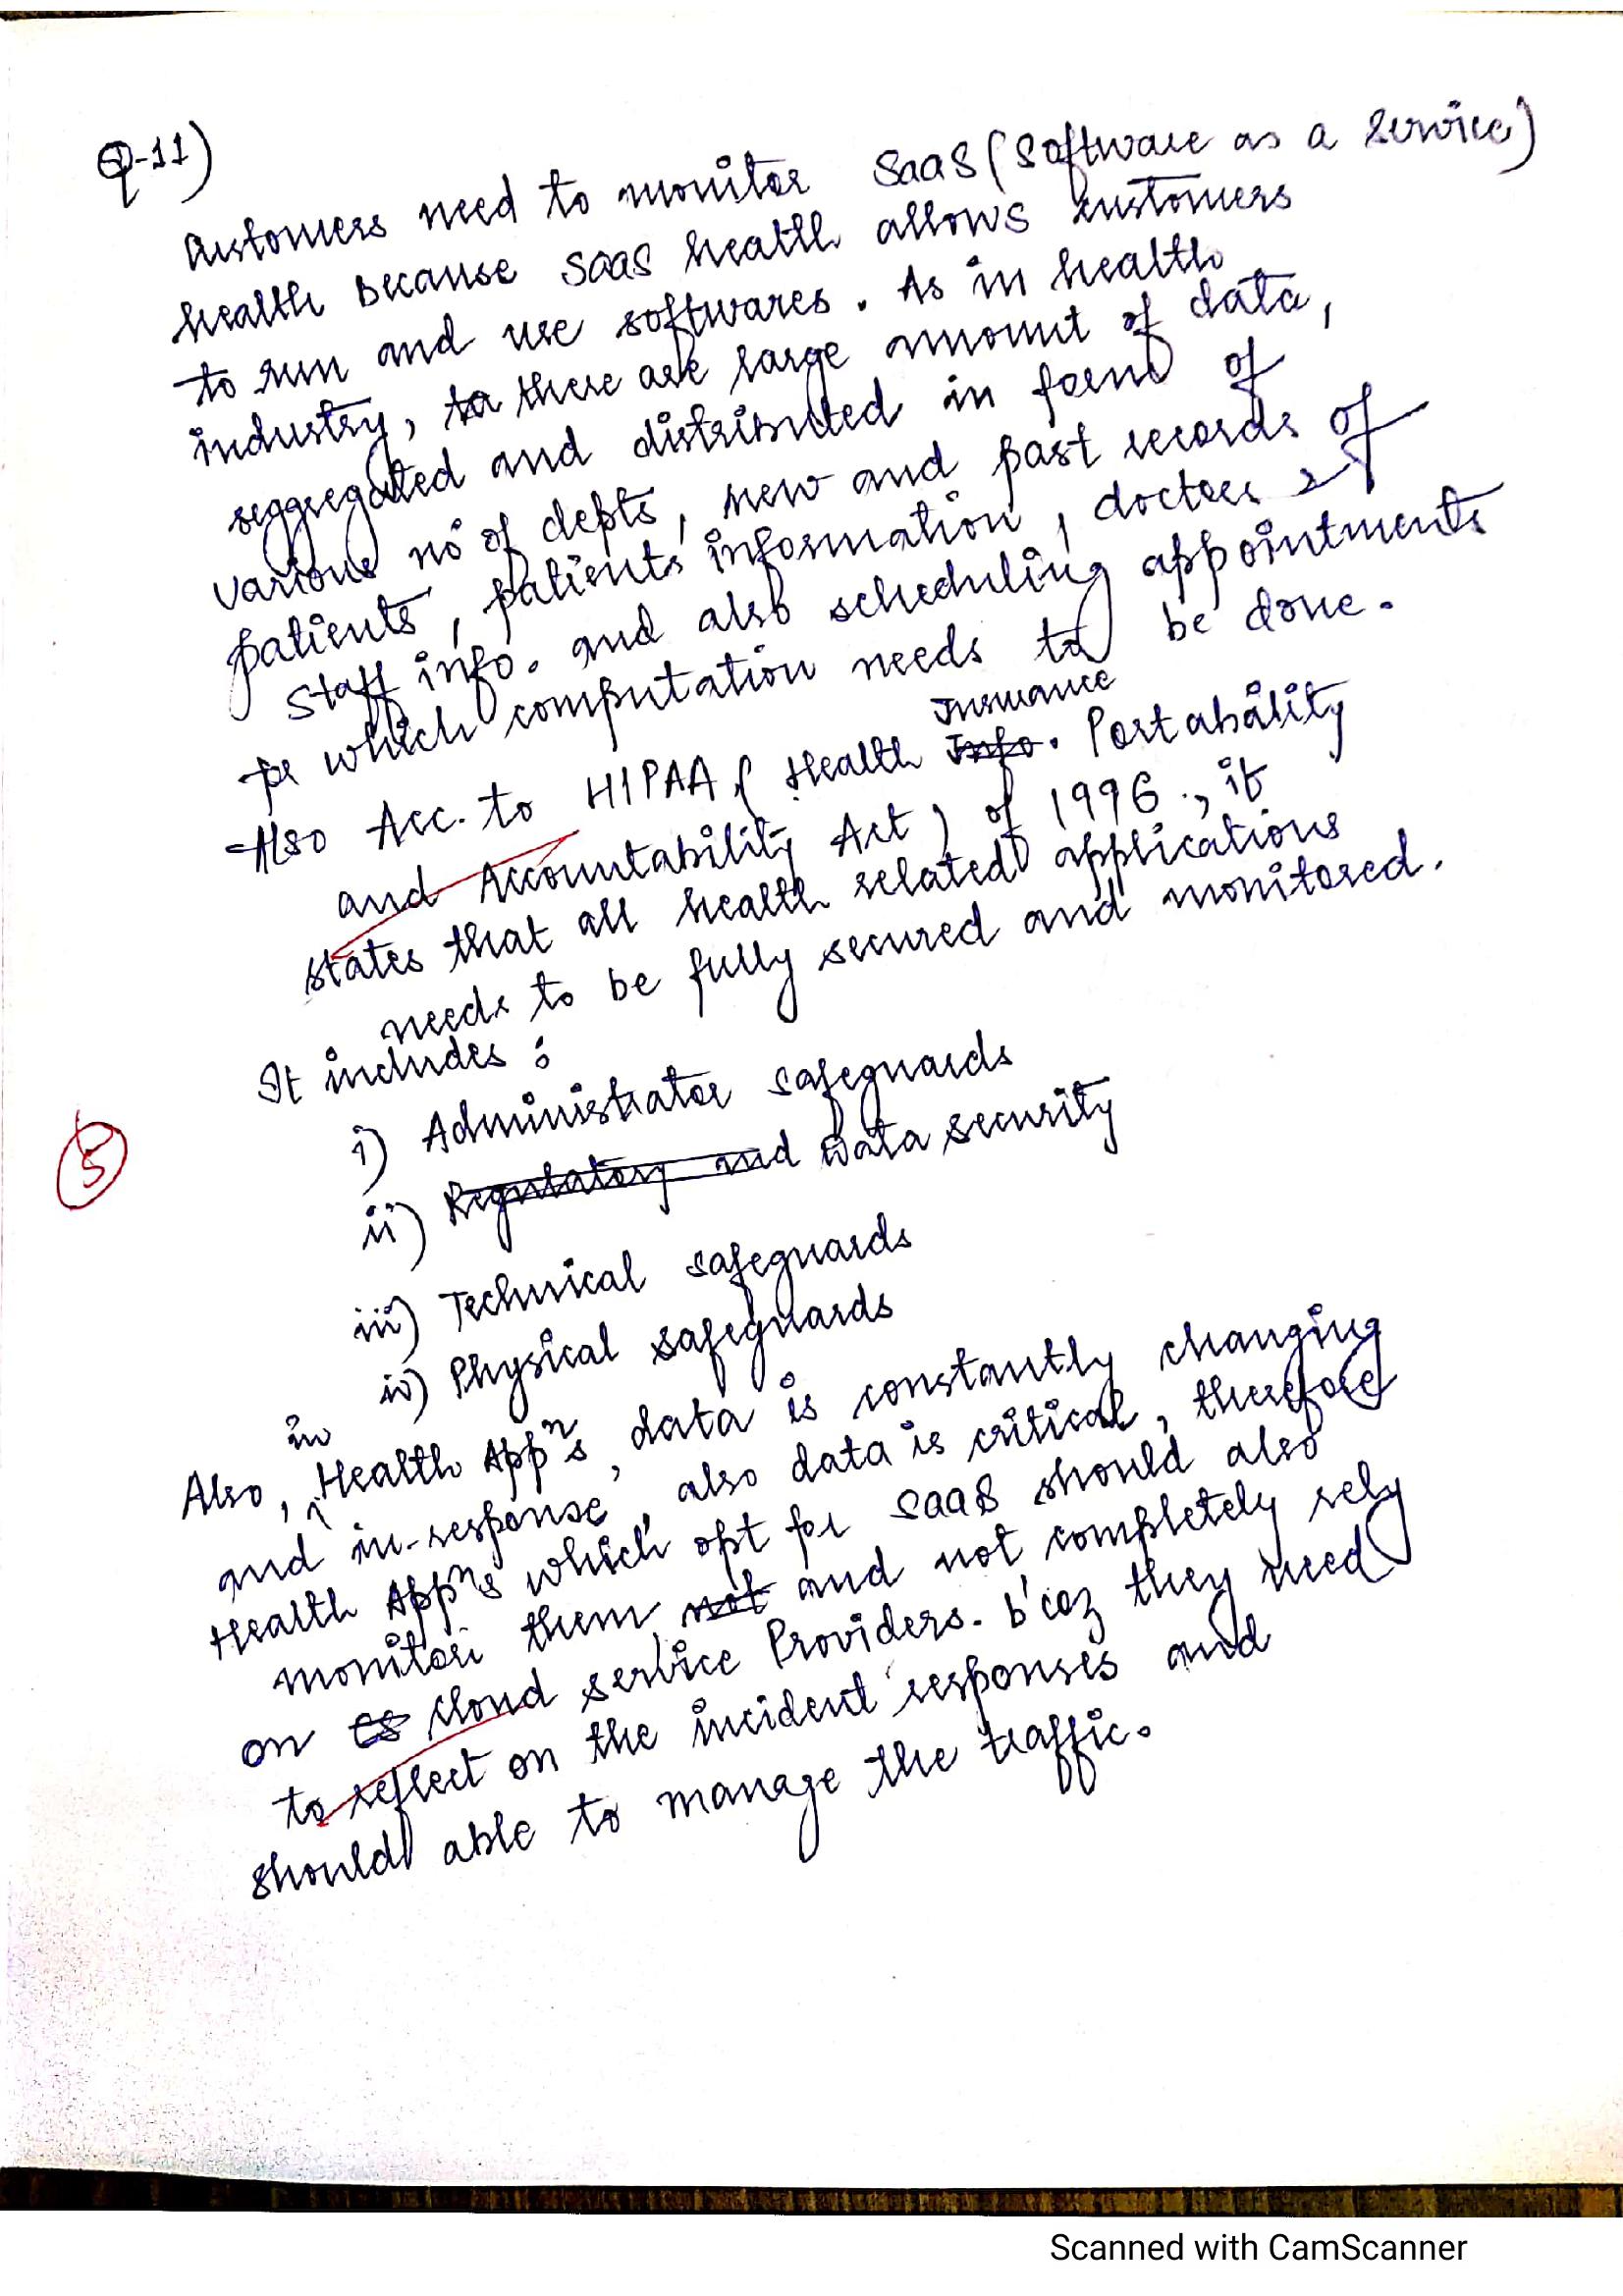 Q-11)
Customers need to monitor SaaS (Software as a Service)
health because SaaS health allows customers
to run and use softwares. As in health
industry, there are large amount of data,
seggregated and distributed in form of
various no of depts, new and past records of
patients, patients' information, doctors of
staff info. and also scheduling appointments
for which computation needs to be done.
Also Acc. to HIPAA ( Health Insurance Portability
and Accountability Act ) of 1996 ., it
states that all health related applications
needs to be fully secured and monitored.
It includes :
i) Administrator safeguards
5
ii) Regulatory and Data security
iii) Technical safeguards
iv) Physical safeguards
Also, in Health Appⁿs, data is constantly changing
and in-response, also data is critical, therefore
Health Appⁿs which opt for SaaS should also
monitor them not and not completely rely
on cs cloud service Providers. b'coz they need
to reflect on the incident responses and
should able to manage the traffic.
Scanned with CamScanner